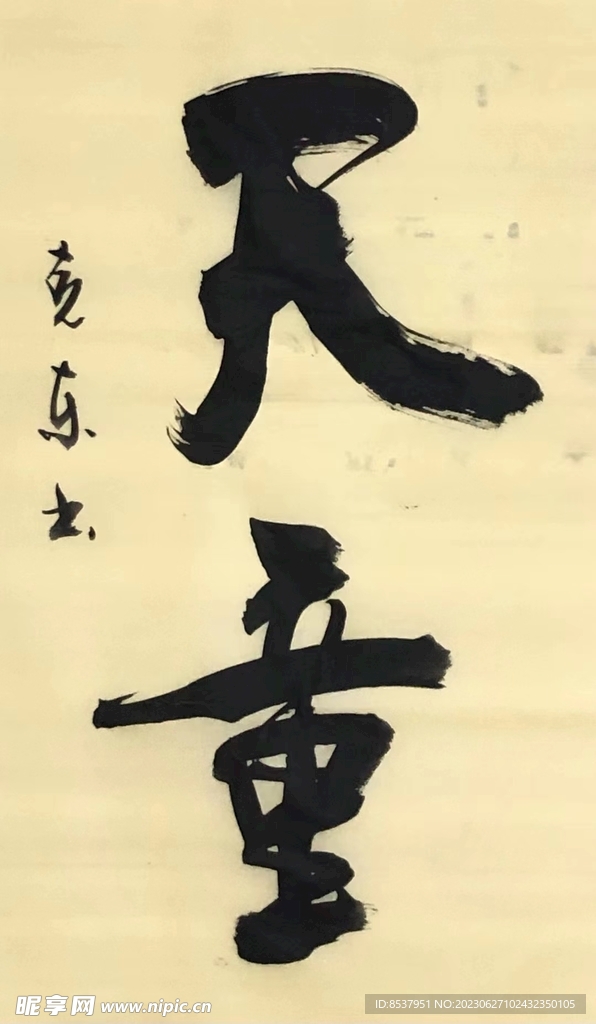 天童
克东书
昵享网 www.nipic.cn
ID:8537951 NO:20230627102432350105